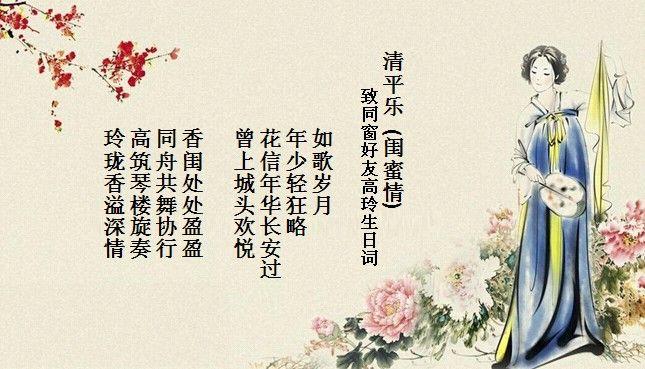 清平乐（闺蜜情）
致同窗好友高玲生日词
如歌岁月
年少轻狂略
花信年华长安过
曾上城头欢悦
香闺处处盈盈
同舟共舞协行
高筑琴楼旋奏
玲珑香溢深情